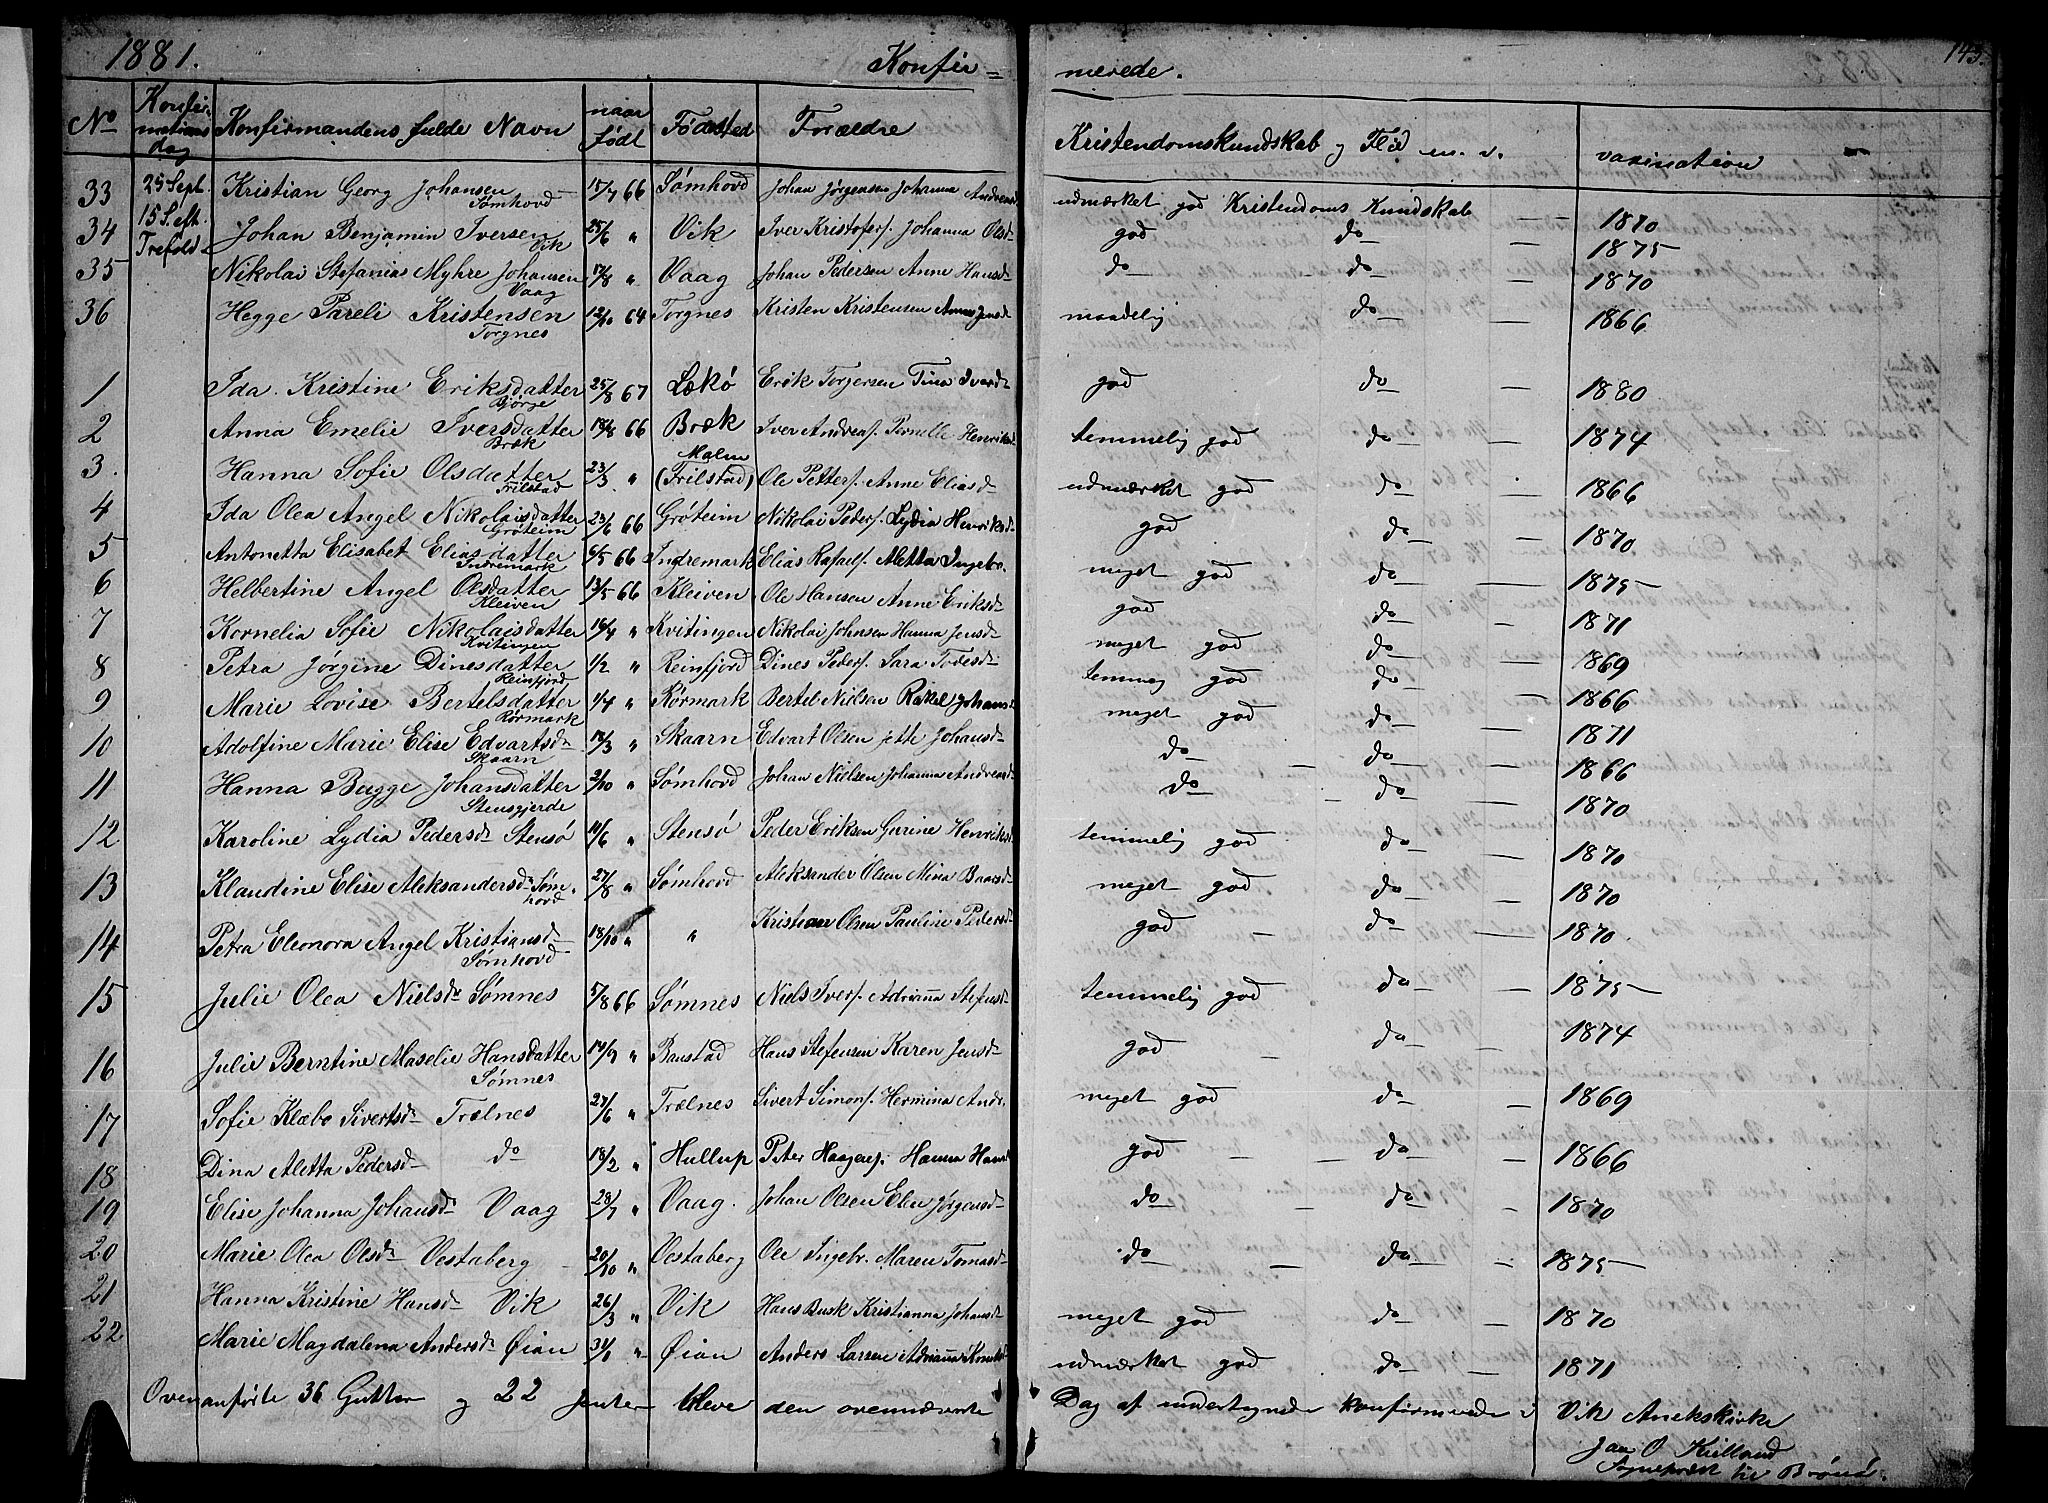 1881. Konfir = merede. 143.
No Konfirmations dag Konfirmandens fulde Navn naar født Fødested Forældre Kristendomskundskab og Flid m. v. vaxination
33 25 Sept Kristian Georg Johansen Sømhovd 15/7 66 Sømhovd Johan Jørgensen Johanna Andreasd udmærket god Kristendoms Kundskab — 1870
34 15 S. eft. Johan Benjamin Iversen Vik 25/6 " Vik Iver Kristofers. Johanna Olsd god do — 1875
35 Trefold. Nikolai Stefanias Myhre Johansen Vaag 17/8 " Vaag Johan Pedersen Anne Hansd do do — 1870
36 Hegge Pareli Kristensen Torgnes 12/10 64 Torgnes Kristen Kristensen Anne Jensd maadelig do — 1866
1 Ida Kristine Eriksdatter Bjørge 25/8 67 Lekø Erik Torgersen Tina Ivard god do — 1880
2 Anna Emelie Iversdatter Bræk 18/8 66 Bræk Iver Andreas. Pernelle Henriksd temmelig god do — 1874
3. Hanna Sofie Olsdatter Trilstad 23/3 " Malm (Trilstad) Ole Petters. Anne Eliasd udmærket god do — 1866
4 Ida Olea Angel Nikolaisdatter Grøteim 23/6 66 Grøteim Nikolai Peders. Lydia Henriksd god do — 1870
5 Antonetta Elisabet Eliasdatter Indremark 6/5 66 Indremark Elias Rafaels. Aletta Ingebr. meget god do — 1875
6 Helbertine Angel Olsdatter Kleiven 13/5 66 Kleiven Ole Hansen Anne Eriksd god do — 1871
7 Kornelia Sofie Nikolaisdatter Kvitingen 16/4 " Kvitingen Nikolai Johnsen Hanna Jensd meget god do — 1869
8 Petra Jørgine Dinesdatter Reinfjord 1/2 " Reinfjord Dines Peders. Sara Todesd temmeg god do — 1866
9 Marie Lovise Bertelsdatter Rørmark 1/4 " Rørmark Bertel Nielsen Rakel Johansd meget god do — 1871
10 Adolfine Marie Elise Edvartsd. Skaarn 18/3 " Skaarn Edvart Olsen Jette Johansd do — do — 1866
11 Hanna Bugge Johansdatter Stensgjerde 2/10 " Sømhovd Johan Nielsen Johanna Andreasd do — do — 1870
12 Karoline Lydia Pedersd. Stensø 11/6 " Stensø Peder Eriksen Gurine Henriksd temmelig god do — 1870
13 Klaudine Elise Aleksandersd. Sømhovd 27/8 " Sømhovd Aleksander Olsen Mina Baarsd meget god do — 1870
14 Petra Eleonora Angel Kristiansd. Sømhovd 18/10 " " Kristian Olsen Pauline Pedersd god — do — 1870
15 Julie Olea Nielsd. Sømnes 5/8 66 Sømnes Niels Ivers. Adrianna Stefensd temmelig god do — 1875
16 Julie Berntine Maselie Hansdatter Sømnes 14/9 " Banstad Hans Stefensen Karen Jensd god — do — 1874
17 Sofie Klæbo Sivertsd. Trælnes 27/6 " Trælnes Sivert Simons. Hermina Andr. meget god do — 1869
18 Dina Aletta Pedersd. do 18/2 " Hullup Peter Haagens. Hanna Hansd god — — do — 1866
19 Elise Johanna Johansd. Vaag 28/7 " Vaag. Johan Olsen Elen Jørgensd do — do — 1870
20 Marie Olea Olsd. Vestaberg 20/10 " Vestaberg Ole Ingebr. Maren Tomasd do — do — 1875
21 Hanna Kristine Hansd. Vik 26/3 " Vik Hans Busk Kristianna Johansd meget god do — 1870
22 Marie Magdalena Andersd. Øian 31/1 " Øian Anders Larsen Adrianna Knudsd udmærket god do — 1871
Ovenanførte 36 Gutter og 22 Jenter bleve den ovennævnte Dag af undertegnede konfirmerede i Vik Anekskirke
Jan O Kielland
Sogneprest til Brønø.